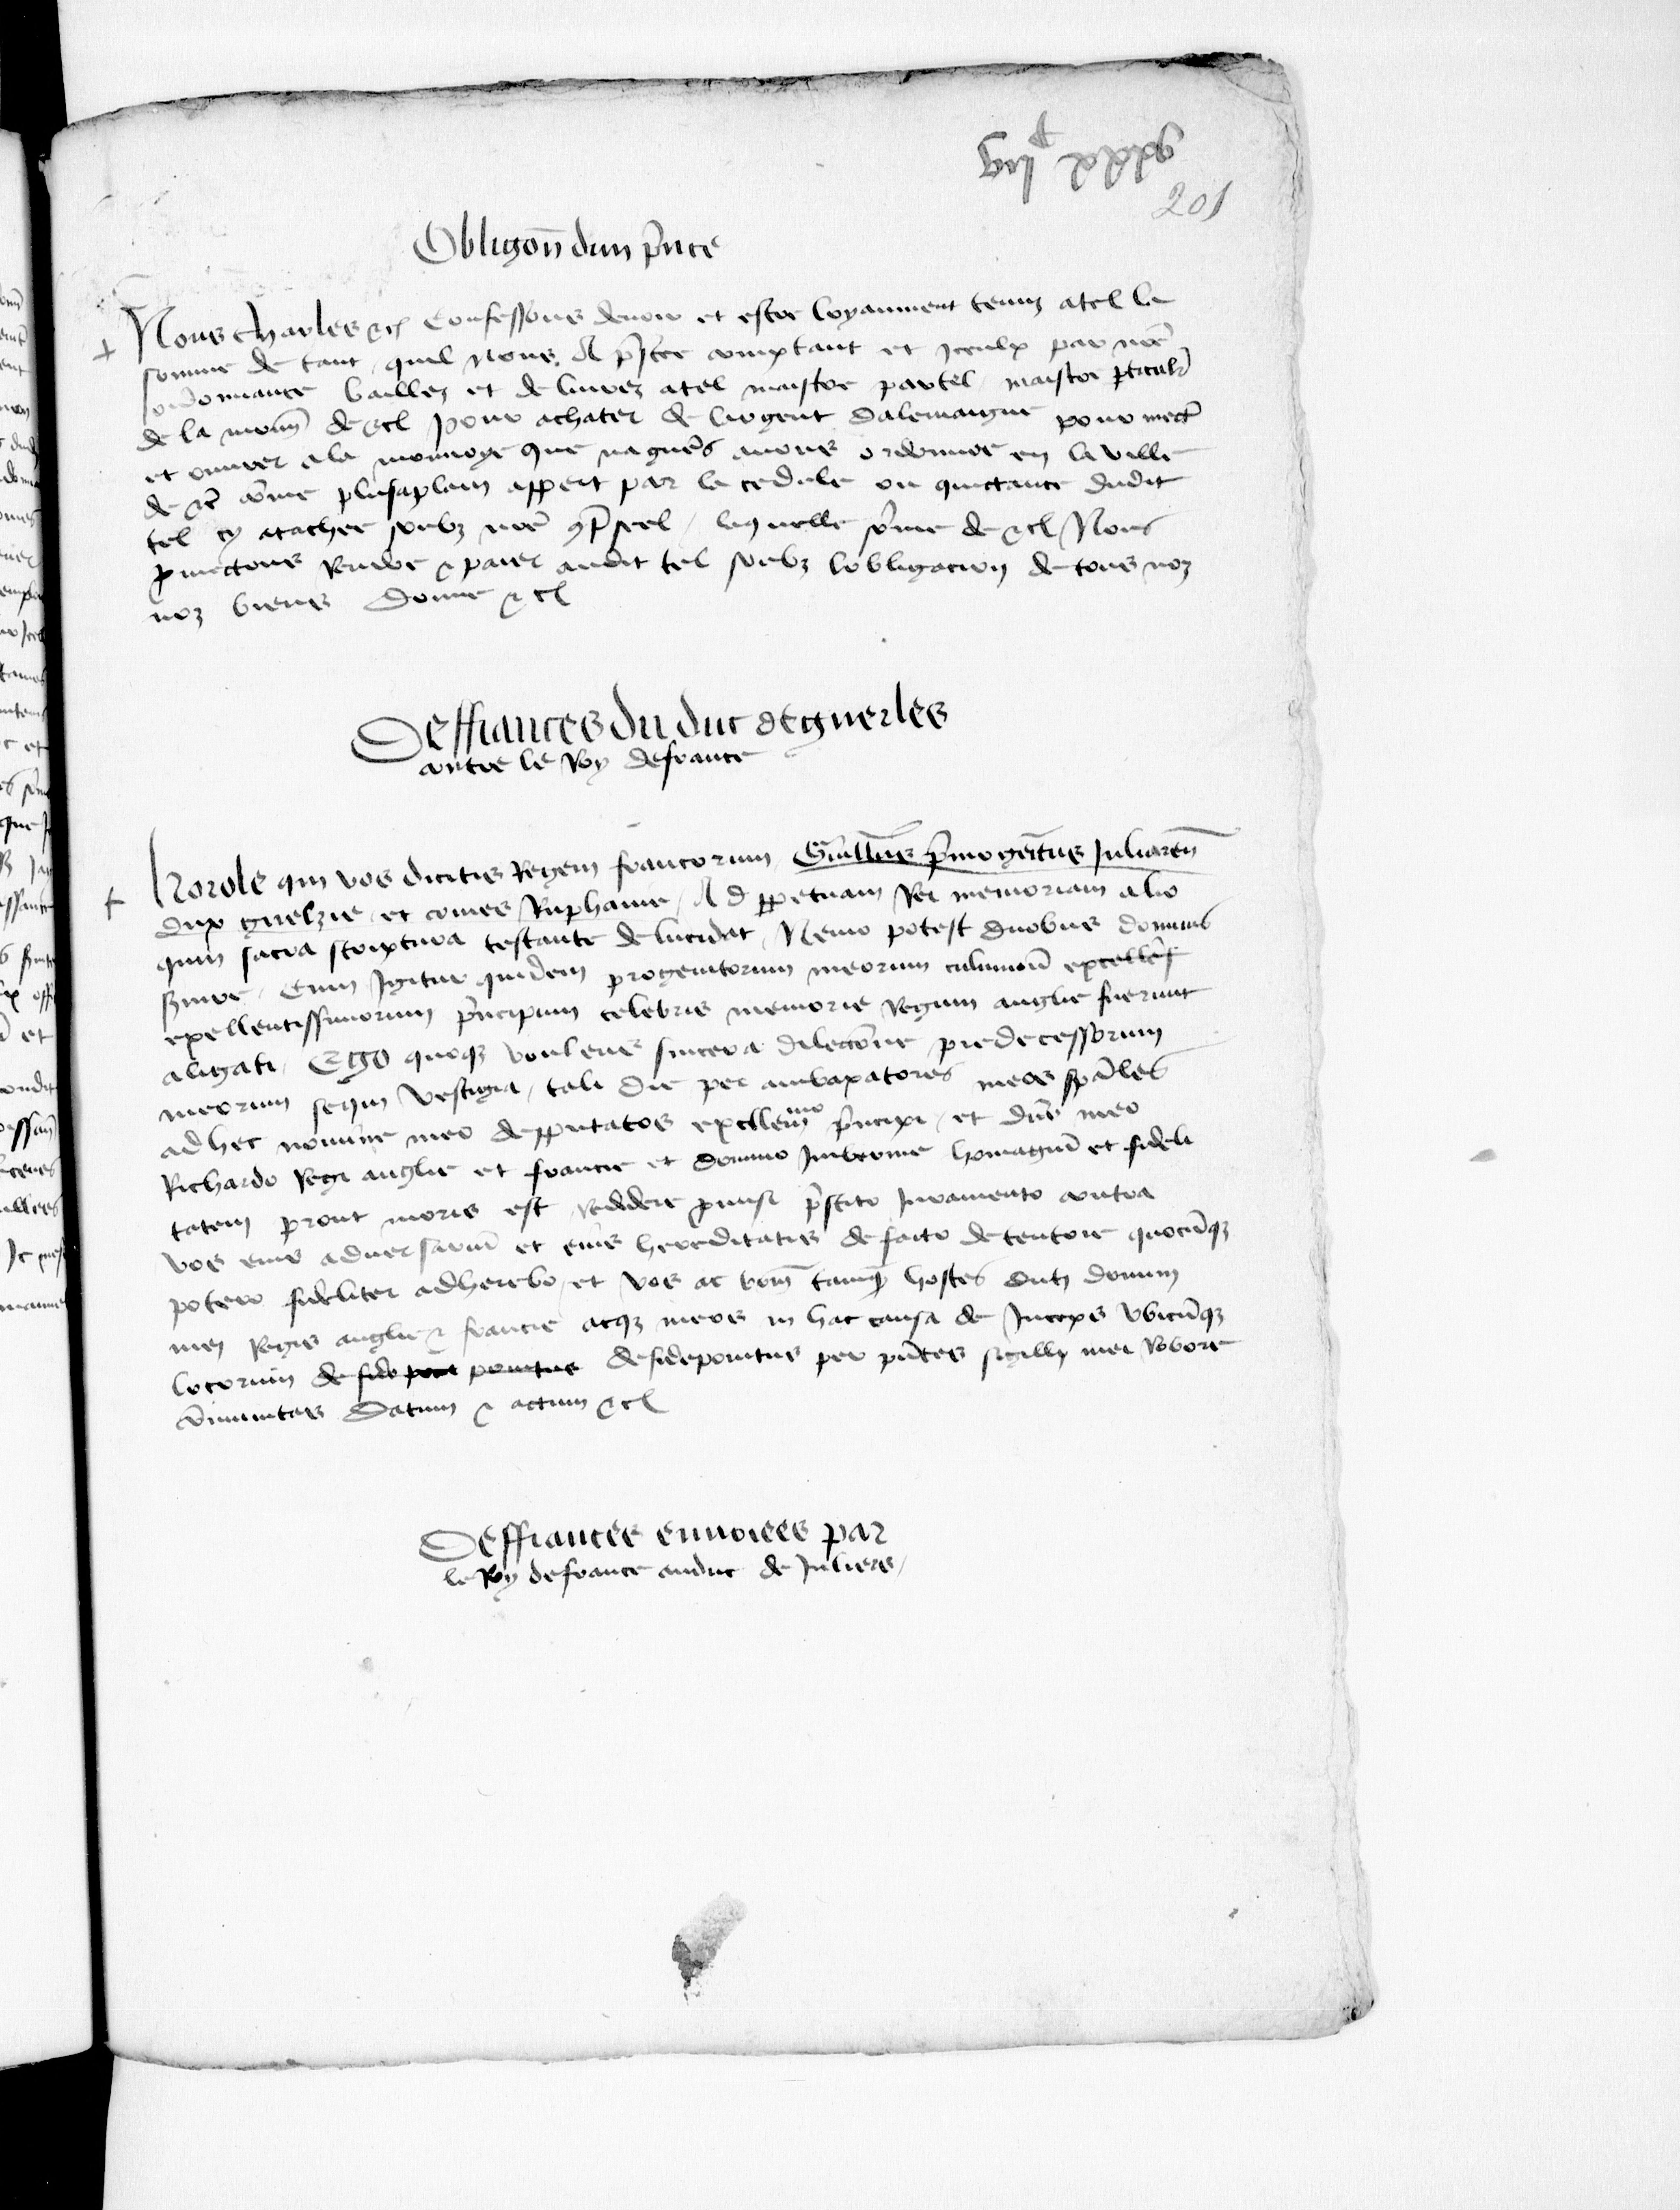 201
Obligon̄ dun p̄nce
Nous charles &c Confessons devoir et estre loyaument tenuz a tel la
somme de tant quil nous A p̄ste comptant et Iceulx par nr̄e
ordonnance baillez et delivrez a tel maistre partel maistre particulr̄
de la monn̄ de &cl pour achater de largent dalemaigne pour mectr̄
et ouvrer a la monnoye que nagueres avons ordonnee en la ville
de &c cōme plusaplain appert par la cedule ou quictance dudit
tel cy atachee soubz nr̄e 9t̄ seel / laquelle sōme de &cl Nous
promectons Rendre & paier audit tel soubz lobligacion de tous noz
noz biens Donne &cl
Deffiances du duc de guerles
contre le Roy de france
Karole qui vos dicitis Regem francorum Guill̄us p̄mogēitus Juliacen̄
dux guelrie et comes Zutphanie / Ad perpetuam Rei memoriam alio
quin sacra scriptura testante delucidat / Nemo potest duobus dominis
servire / Cum Igitur quidem progenitorum meorum culmen̄ excellēs
expellentissimorum p̄ncipum celebris memorie Regum anglie fuerunt
aligati / Ego quoque volens sincera dileccōne predecessorum
meorum sequi vestigia / tali die per ambaxatores meos sp̄ales
ad hec nomine meo depputatos expellem̄mo p̄ncipi / et dn̄o meo
Richardo Regi anglie et francie et domino hibernie homagiū et fideli
tatem prout moris est Reddere promisi p̄stito Iuramento contra
vos eius adversariū et eius hereditatis de facto detentore quocūque
potero fideliter adherebo / et vos ac vr̄m tamq̄ hostes dicti domini
mei Regis anglie & francie atque meos in hac causa de Inceps ubicūque
locorum de fide pontus desideponitus per p̄ntes sigilli mei Robore
cōmunitas Datum & actum &cl
Deffiances envoiees par
le Roy de france au duc de Juliers /